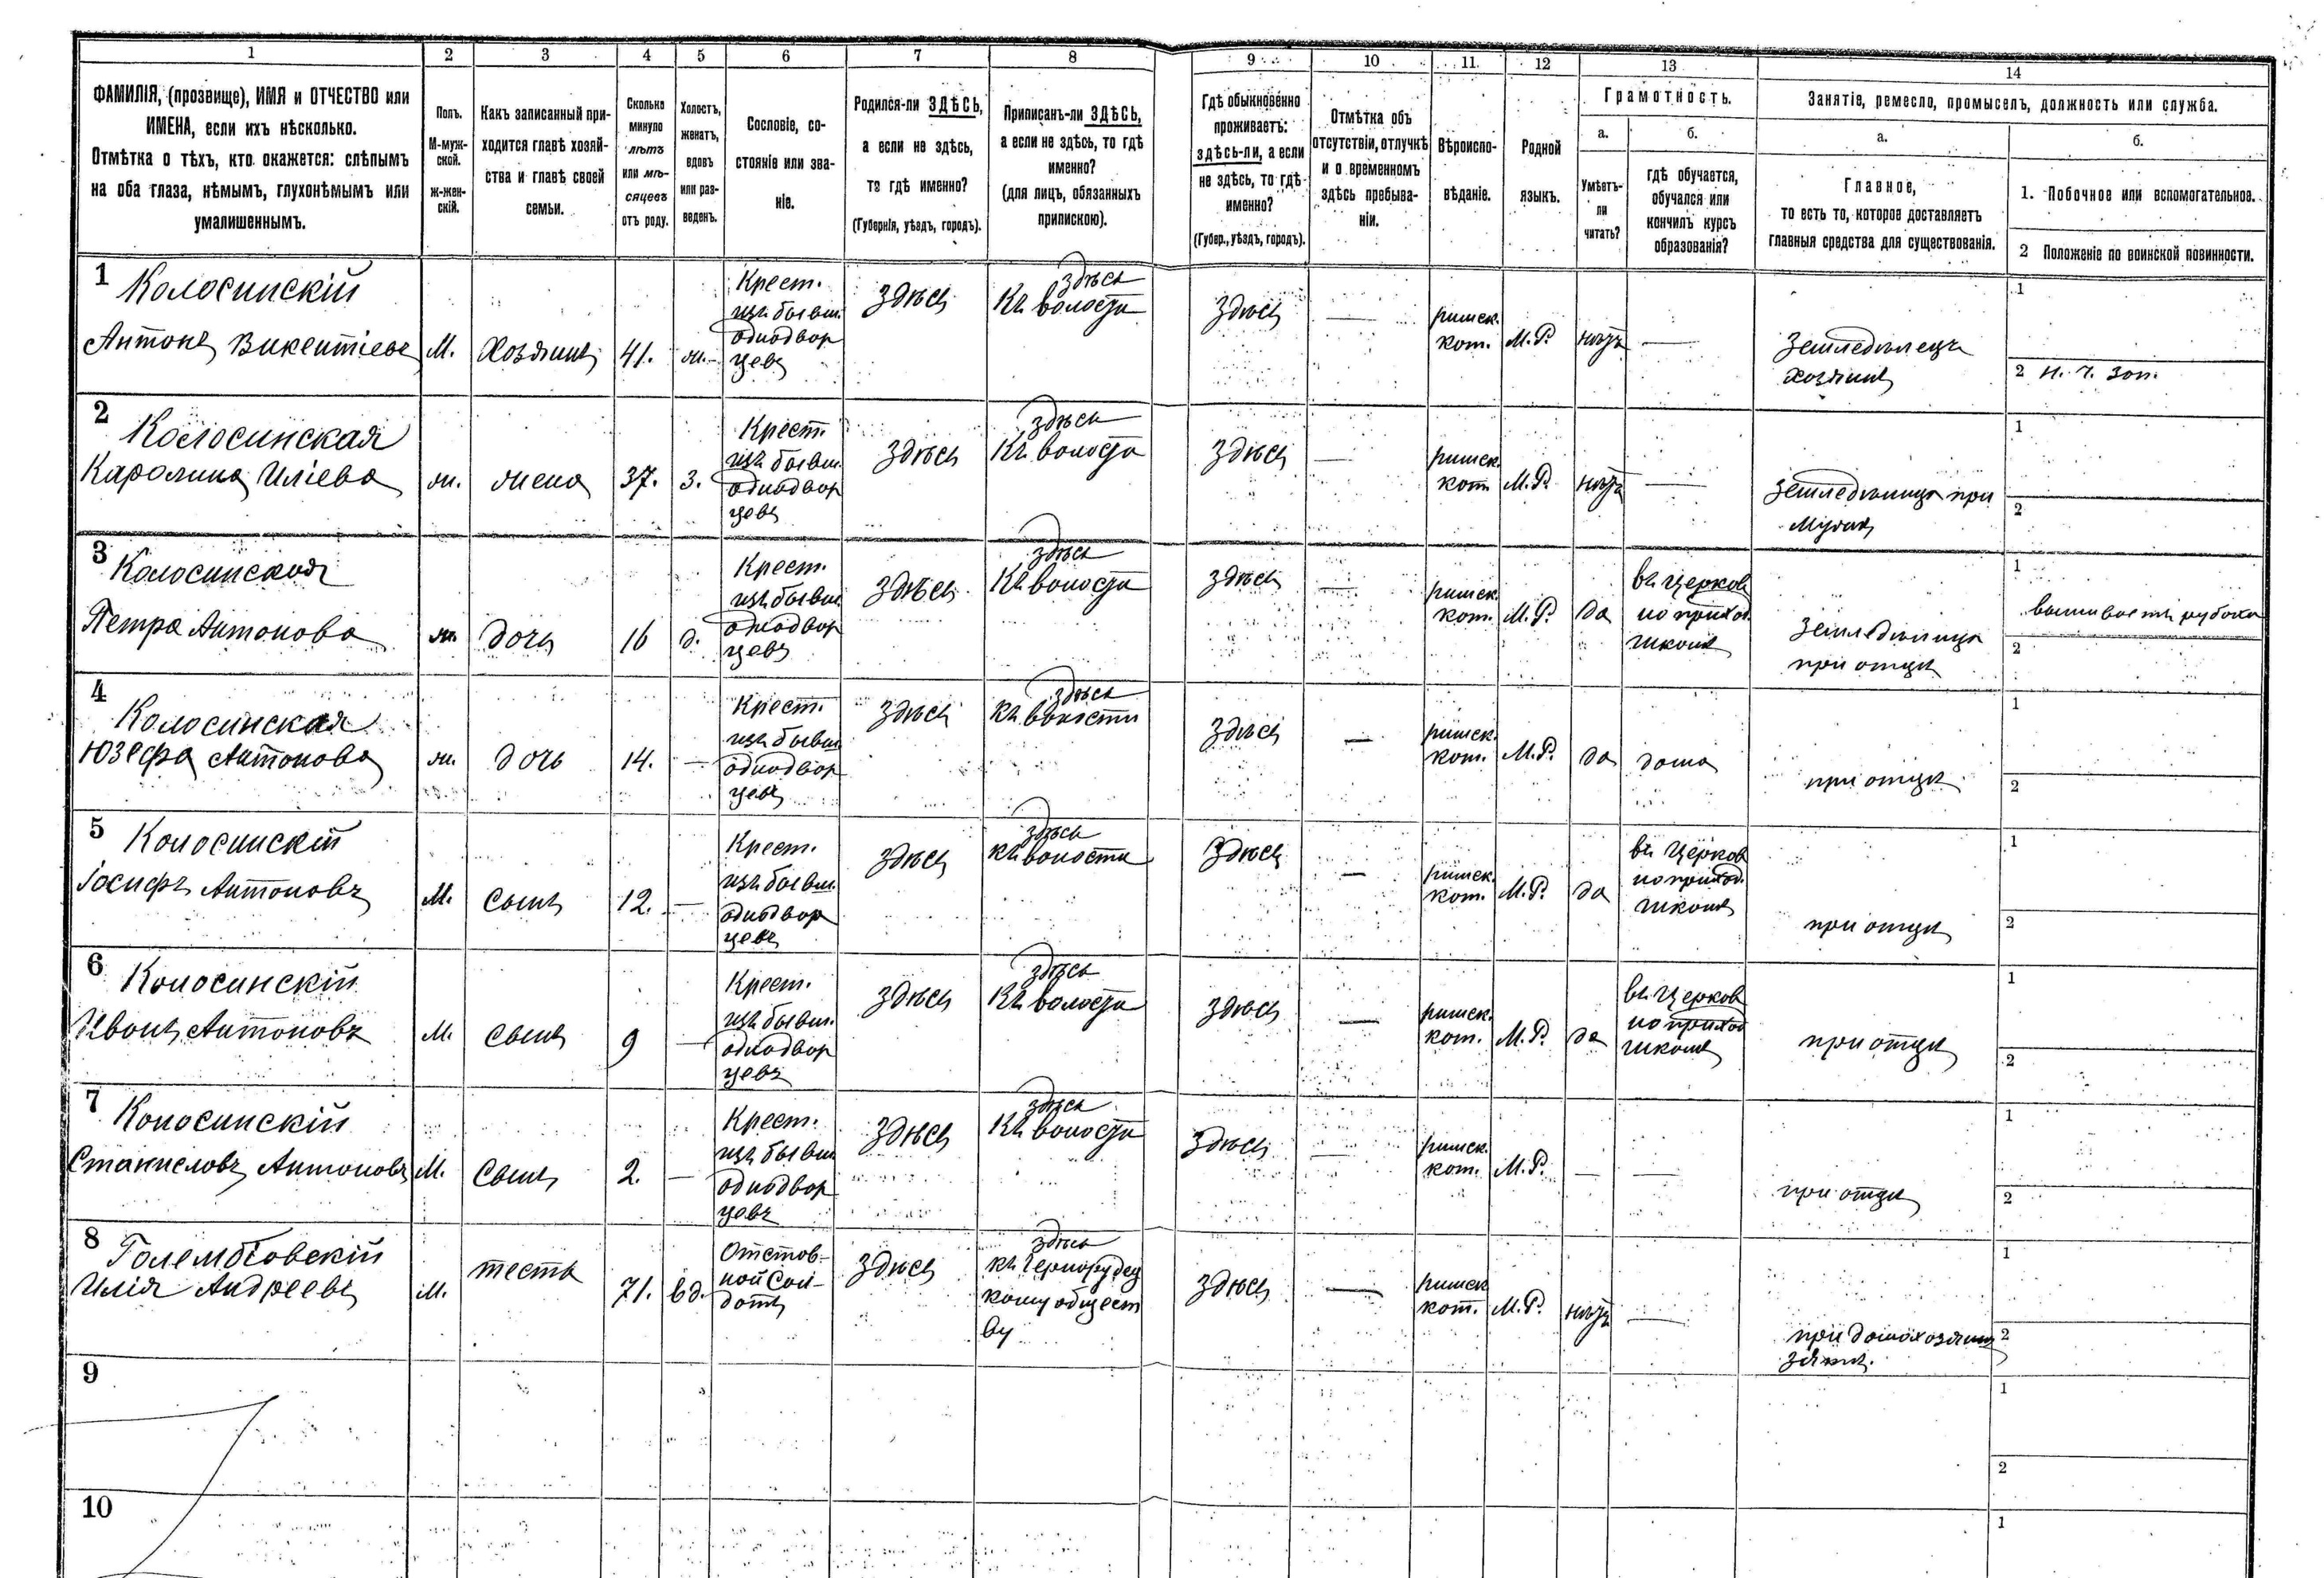 1 2 3 4 5 6 7 8 9 10 11 12 13 14
ФАМИЛІЯ, (прозвище), ИМЯ и ОТЧЕСТВО или
ИМЕНА, если ихъ нѣсколько.
Отмѣтка о тѣхъ, кто окажется: слѣпымъ
на оба глаза, нѣмымъ, глухонѣмымъ или
умалишеннымъ.
Полъ.
М-муж-
ской.
ж-жен-
скій.
Какъ записанный при-
ходится главѣ хозяй-
ства и главѣ своей
семьи.
Сколько
минуло
лѣтъ
или мѣ-
сяцевъ
отъ роду.
Холостъ,
женатъ,
вдовъ
или раз-
веденъ.
Сословіе, со-
стояніе или зва-
ніе.
Родился-ли ЗДѢСЬ,
а если не здѣсь,
то гдѣ именно?
(Губернія, уѣздъ, городъ).
Приписанъ-ли ЗДѢСЬ,
а если не здѣсь, то гдѣ
именно?
(для лицъ, обязанныхъ
припискою).
Гдѣ обыкновенно
проживаетъ:
здѣсь-ли, а если
не здѣсь, то гдѣ
именно?
(Губер., уѣздъ, городъ).
Отмѣтка объ
отсутствіи, отлучкѣ
и о временномъ
здѣсь пребыва-
ніи.
Вѣроиспо-
вѣданіе.
Родной
языкъ.
Грамотность.
а.
Умѣетъ-
ли
читать?
б.
гдѣ обучается,
обучался или
кончилъ курсъ
образованія?
Занятіе, ремесло, промыселъ, должность или служба.
а.
Главное,
то есть то, которое доставляетъ
главныя средства для существованія.
б.
1. Побочное или вспомогательное.
2 Положеніе по воинской повинности.
1
Колосинскій
Антонъ Викентіевъ
М.
Хозяинъ
41.
ж.
Крест.
изъ бывш.
однодвор
цевъ
здѣсь
здѣсь
Къ волости
здѣсь
—
римск.
кат.
М.Р.
нѣтъ
—
Земледѣлецъ
хозяинъ
1
2 н. ч. зап.
2
Колосинская
Каролина Иліева
ж.
жена
37.
з.
Крест.
изъ бывш.
однодвор
цевъ
здѣсь
здѣсь
Къ волости
здѣсь
—
римск.
кат
М.Р.
нѣтъ
—
земледѣлица при
мужѣ
1
2
3
Колосинская
Петра Антонова
ж.
дочь
16
д.
Крест.
изъ бывш.
однодвор
цевъ
здѣсь
здѣсь
Къ волости
здѣсь
—
римск.
кат.
М.Р.
да
въ церков
но приход.
школѣ
Земледѣлица
при отцѣ
1
вышиваетъ рубахи
2
4
Колосинская
Юзефа Антонова
ж.
дочь
14.
—
Крест.
изъ бывш
однодвор
цевъ
здѣсь
здѣсь
Къ волости
здѣсь
—
римск.
кат.
М.Р.
да
дома
при отцѣ
1
2
5
Колосинскій
Іосифъ Антоновъ
М.
сынъ
12.
—
Крест.
изъ бывш.
однодвор
цевъ
здѣсь
здѣсь
къ волости
здѣсь
—
римск.
кат.
М.Р.
да
въ церков
но приход.
школѣ
при отцѣ
1
2
6
Колосинскій
Иванъ Антоновъ
М.
сынъ
9
—
Крест.
изъ бывш.
однодвор
цевъ
здѣсь
здѣсь
Къ волости
здѣсь
—
римск.
кат.
М.Р.
да
въ церков
но приход
школѣ
при отцѣ
1
2
7
Колосинскій
Станиславъ Антоновъ
М.
сынъ
2.
—
Крест.
изъ бывш
однодвор
цевъ
здѣсь
здѣсь
Къ волости
здѣсь
—
римск.
кат.
М.Р.
—
—
при отцѣ
1
2
8
Голембіовскій
Илія Андреевъ
М.
тесть
71.
вд.
Отстав-
ной сол-
датъ
здѣсь
здѣсь
къ Чернорудец
кому общест
ву
здѣсь
—
римск
кат.
М.Р.
нѣтъ
—
при домохозяинѣ
зятѣ.
1
2
9
1
2
10
1